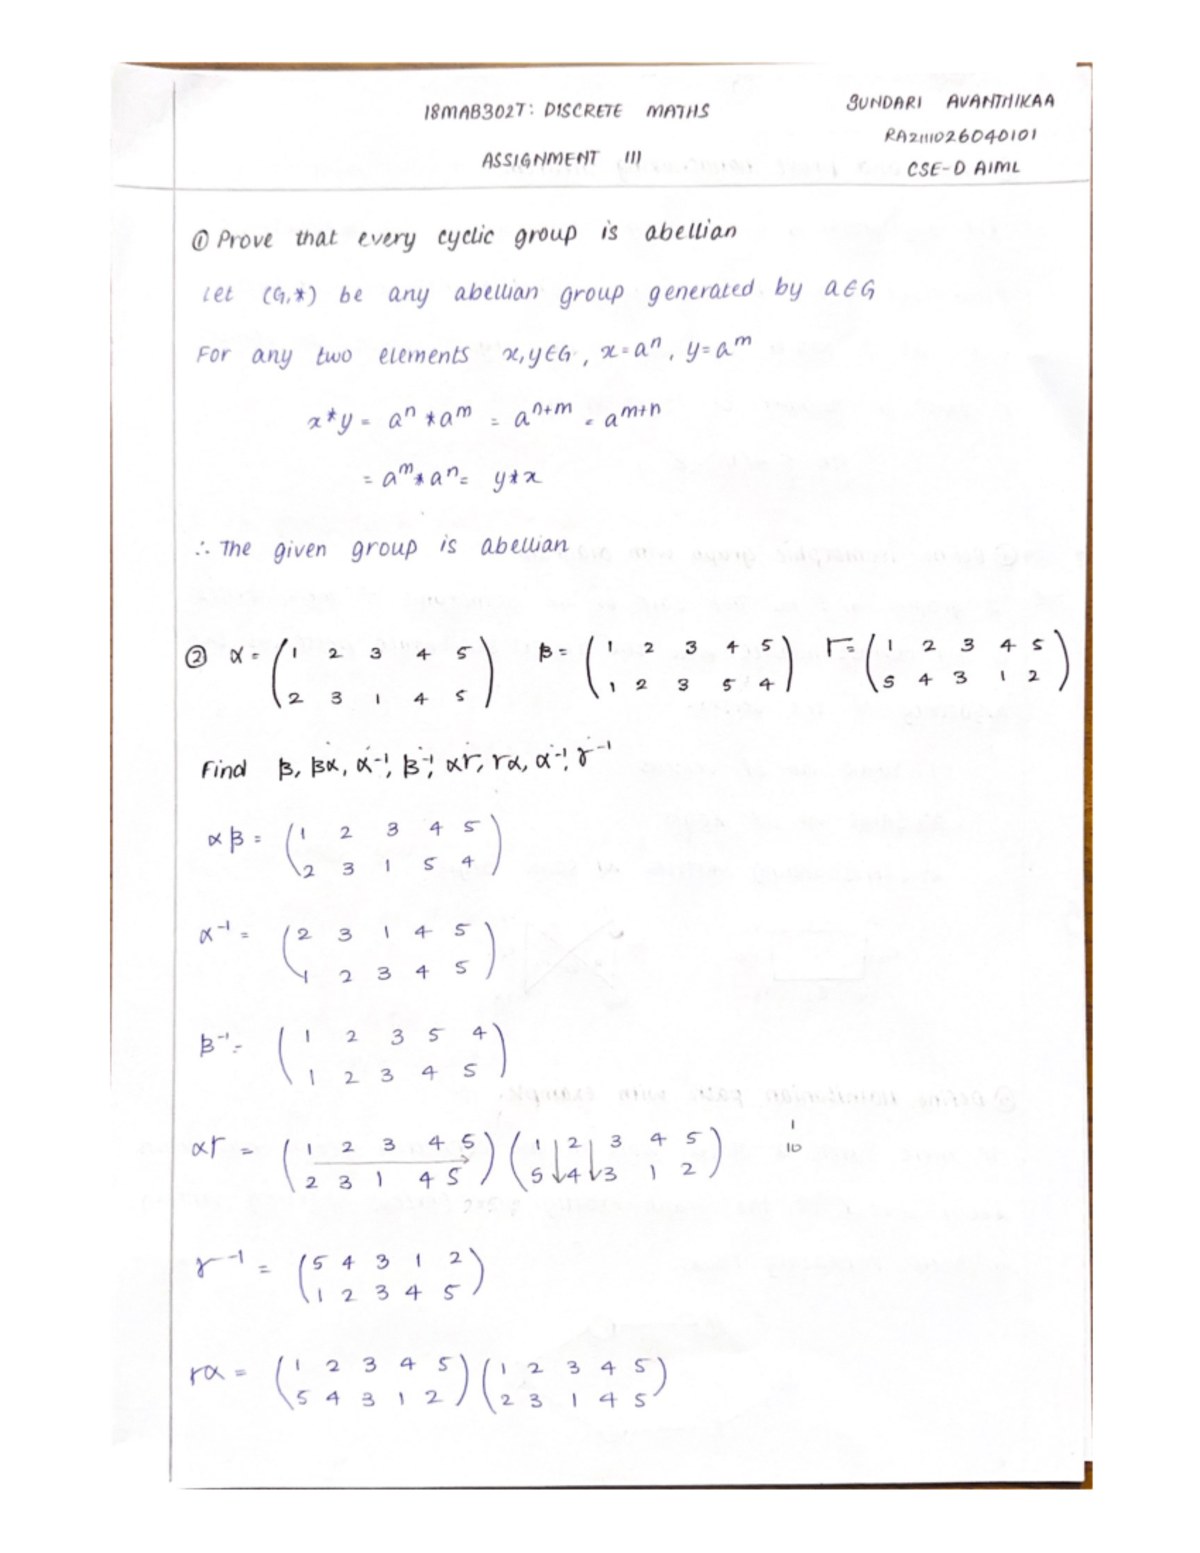 18MAB302T: DISCRETE MATHS
ASSIGNMENT III
SUNDARI AVANTHIKAA
RA2111026040101
CSE-D AIML
① Prove that every cyclic group is abellian
Let (G,*) be any abellian group generated by a∈G
For any two elements x,y∈G, x=aⁿ, y=aᵐ
x*y = aⁿ *aᵐ = aⁿ⁺ᵐ = aᵐ⁺ⁿ
= aᵐ*aⁿ= y*x
∴ The given group is abellian
② α = (1 2 3 4 5 β = (1 2 3 4 5 r = (1 2 3 4 5
2 3 1 4 5) 1 2 3 5 4) 5 4 3 1 2)
Find β, βα, α⁻¹, β⁻¹, αr, rα, α⁻¹, γ⁻¹
αβ = (1 2 3 4 5
2 3 1 5 4)
α⁻¹ = (2 3 1 4 5
1 2 3 4 5)
β⁻¹ = (1 2 3 5 4
1 2 3 4 5)
αr = (1 2 3 4 5) (1 2 3 4 5)
(2 3 1 4 5) (5 4 3 1 2)
1
10
γ⁻¹ = (5 4 3 1 2
1 2 3 4 5)
rα = (1 2 3 4 5) (1 2 3 4 5)
(5 4 3 1 2) (2 3 1 4 5)